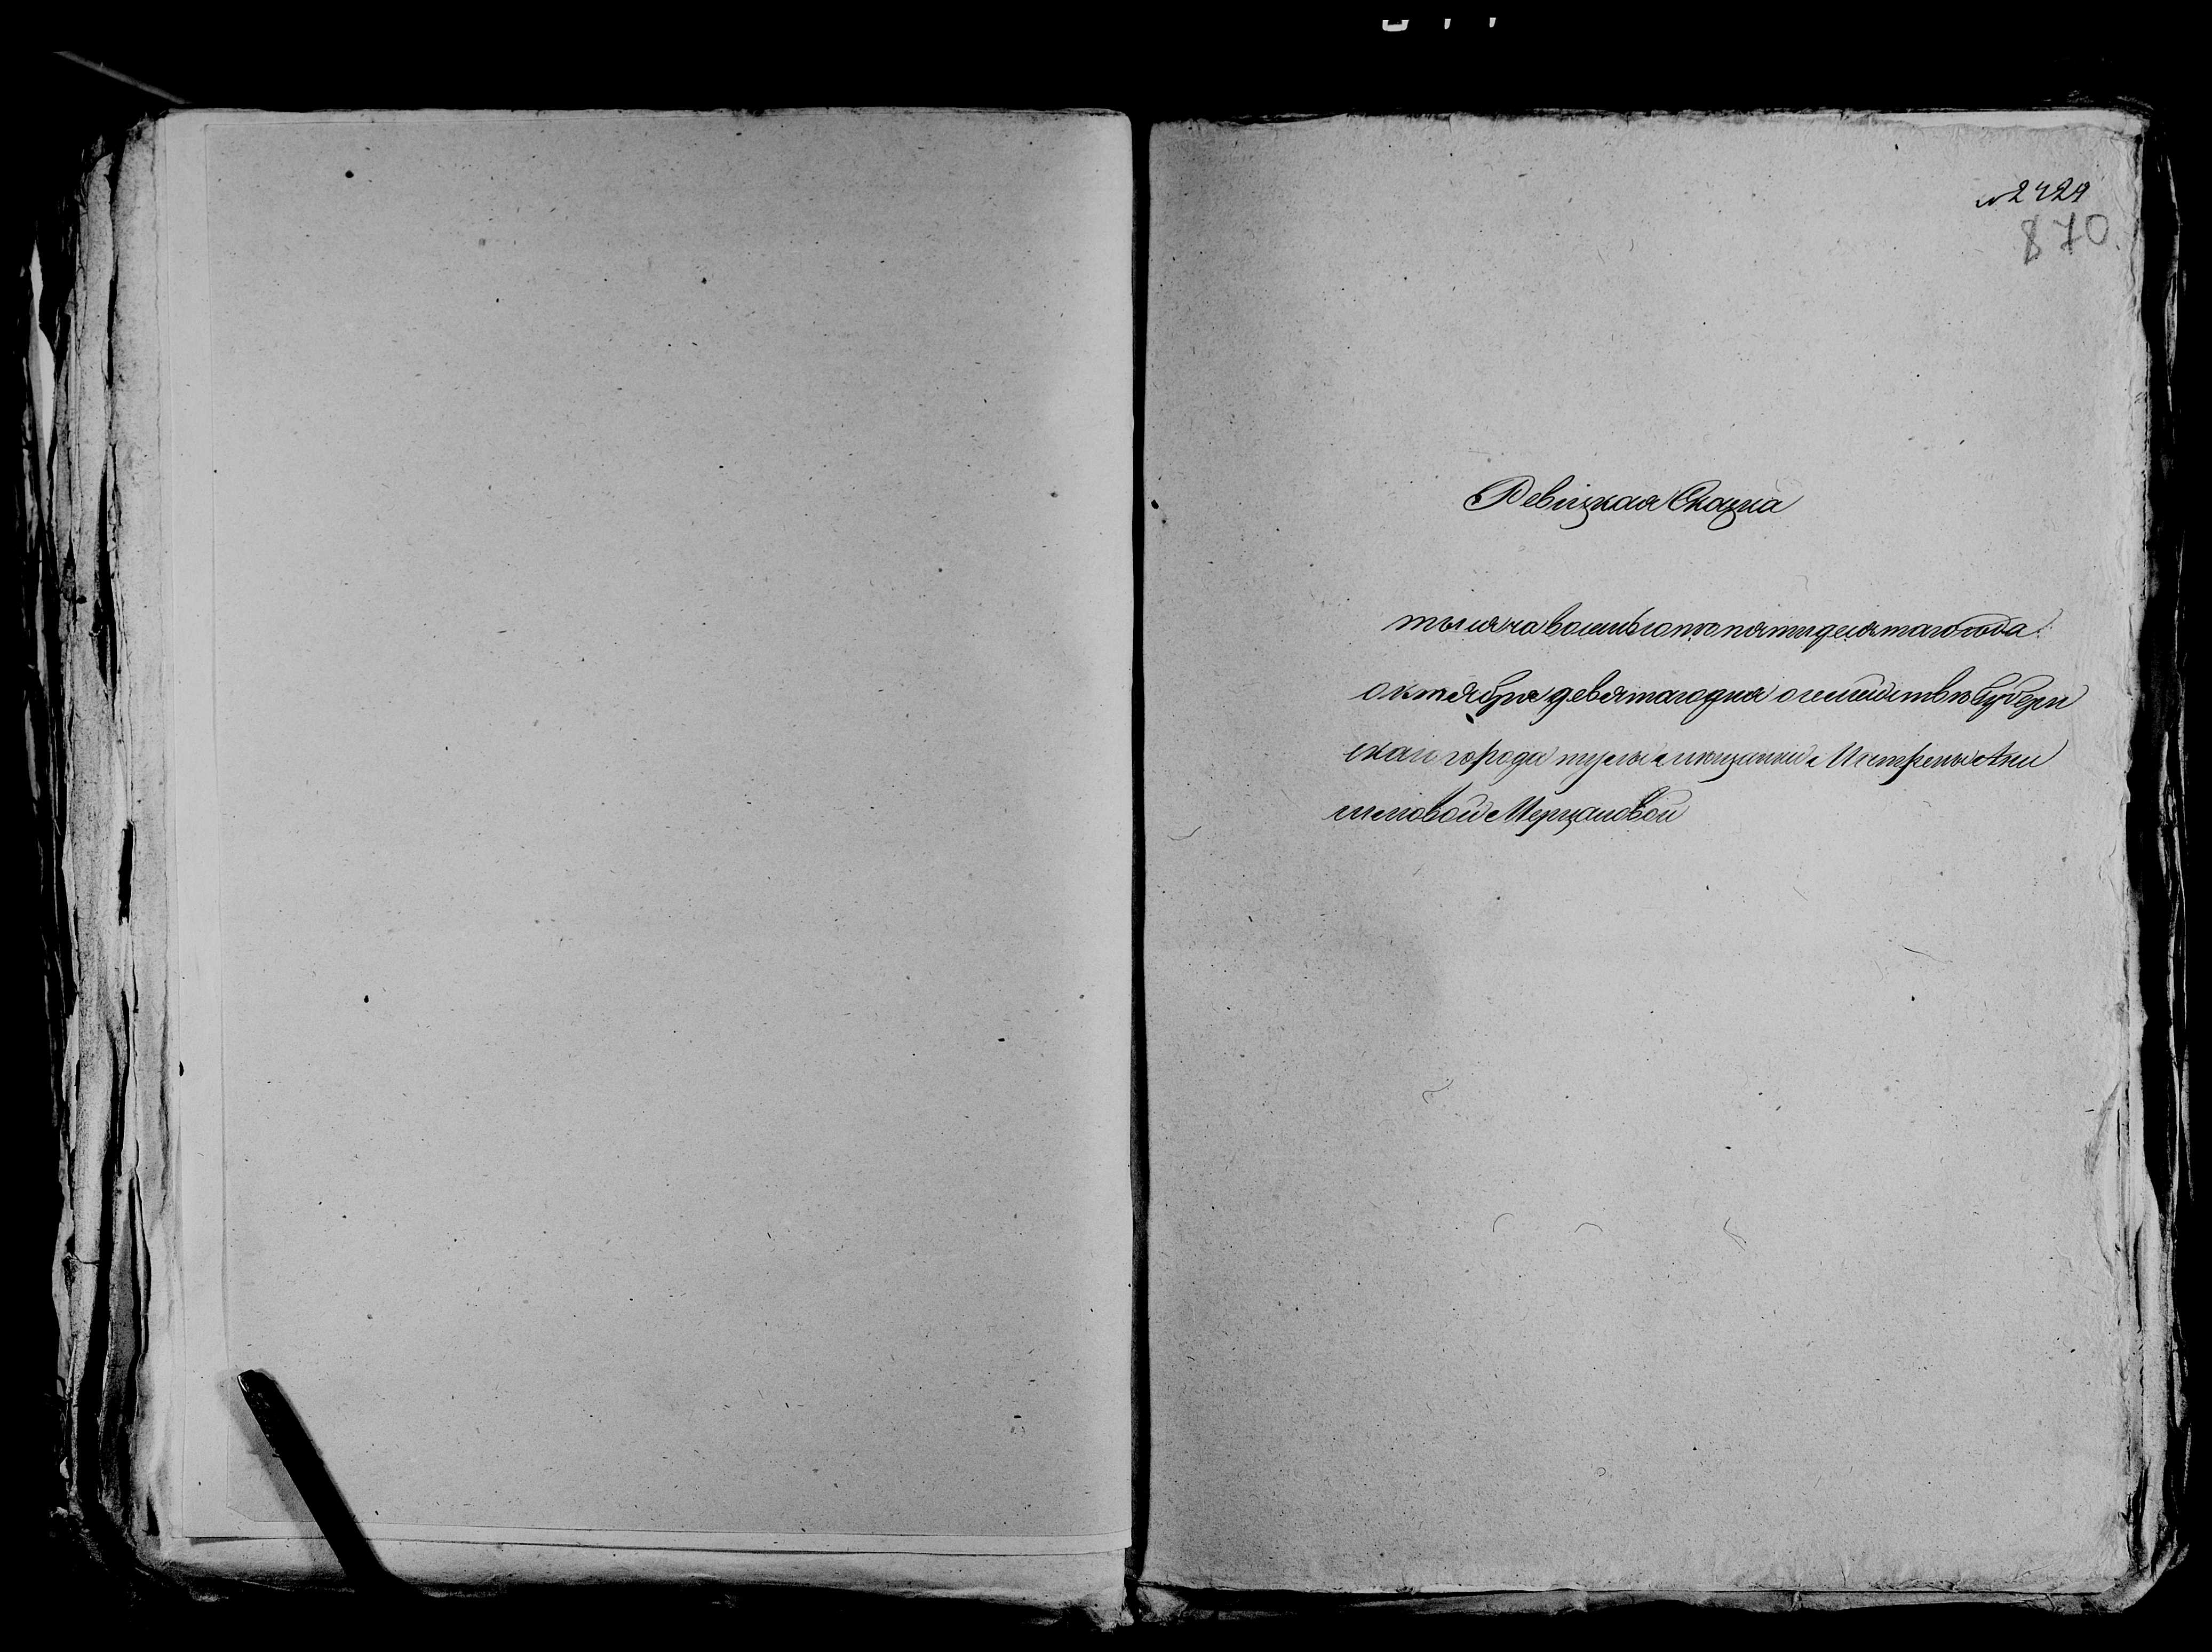 № 2429
870.
Ревизкая Сказка
тысяча восемьсотъ пятидесятаго года
октября девятагодня осемействѣ Губерн
скаго города тулы мещанки Матрены Аки
мовой Мерцаловой